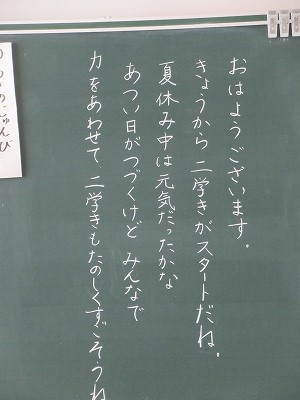 おはようございます。
きょうから二学きがスタートだね。
夏休み中は元気だったかな
あつい日がつづくけど みんなで
力をあわせて、二学きもたのしくすごそうね
じゅんび